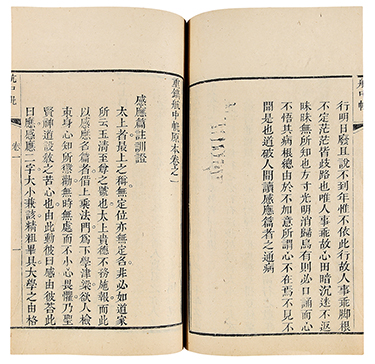 行明日廢且說不到年惟不依此行故人事乖腳根
不定茫茫歧路也唯人事乖故心田暗沉迷不返
昧昧無何方寸光明消歸烏有則必口誦而心
不悟其病根總由於不加意所謂心不在焉不見不
聞是也道破人間讀感應篇者之通病
重鐫航中帆原本卷之一
感應篇註訓證
太上者最上之稱無定位亦無定名非必如道家
所云玉清至尊之號也太上貴德不務施報而此
以感應名篇者借上乘法門為下學津梁欲人檢
束身心知所懲勸無時無處而不小心畏懼乃聖
賢神道設教之苦心也由此動彼曰感由彼答此
曰應感應二字大小兼該精粗畢具大學之由格
卷一